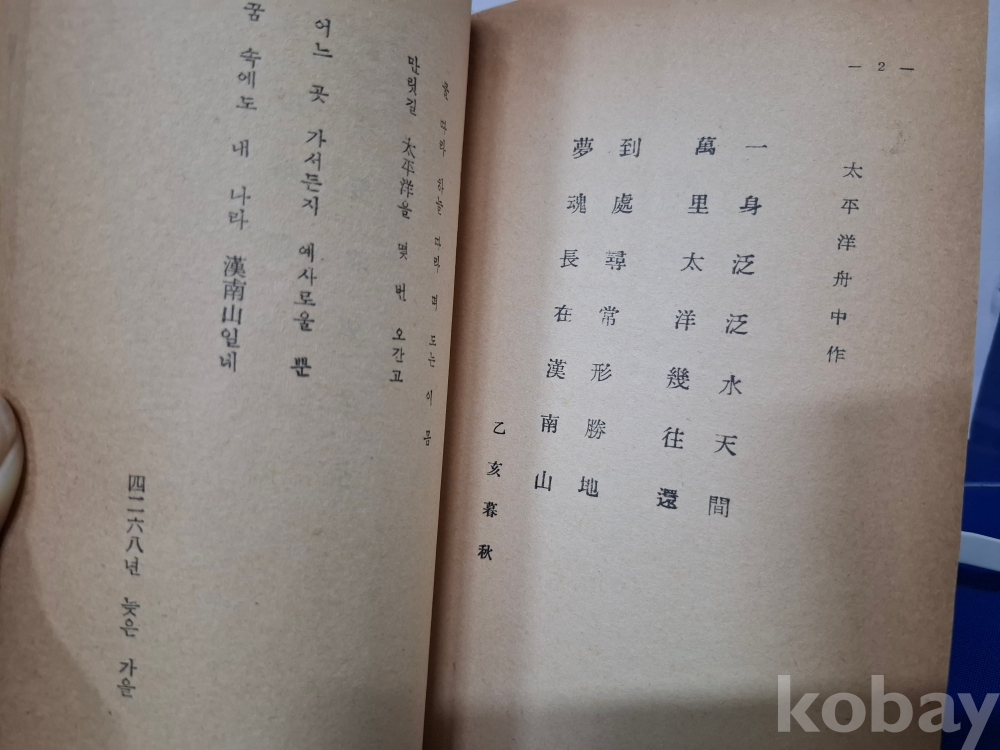 — 2 —
太平洋舟中作
一身泛泛水天間
萬里太洋幾往還
到處尋常形勝地
夢魂長在漢南山
乙亥暮秋
물 따라 하늘 따라 떠 도는 이 몸
만릿길 太平洋을 몇 번 오간고
어느 곳 가서든지 예사로울 뿐
꿈 속에도 내 나라 漢南山일네
四二六八년 늦은 가을
kobay